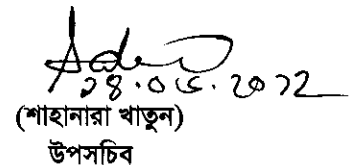 ২৪.০৫.২০২২
(শাহানারা খাতুন)
উপসচিব